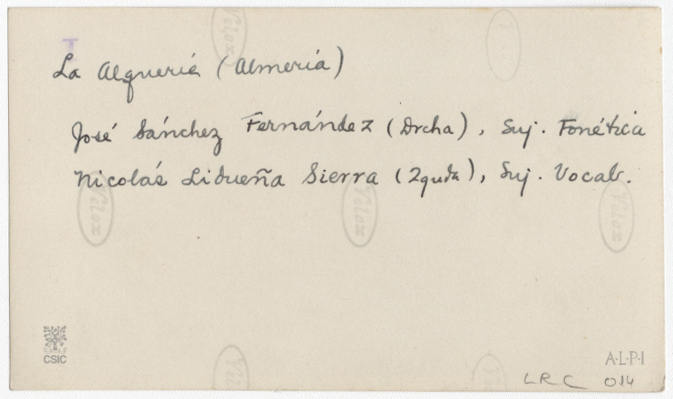 I
La Alquería (Almería)
José Sánchez Fernández (Drcha), Suj. Fonética
Nicolás Lidueña Sierra (Izquda), Suj. Vocab.
Velox
Velox
Velox
Velox
Velox
CSIC
A·L·P·I
LRC 014